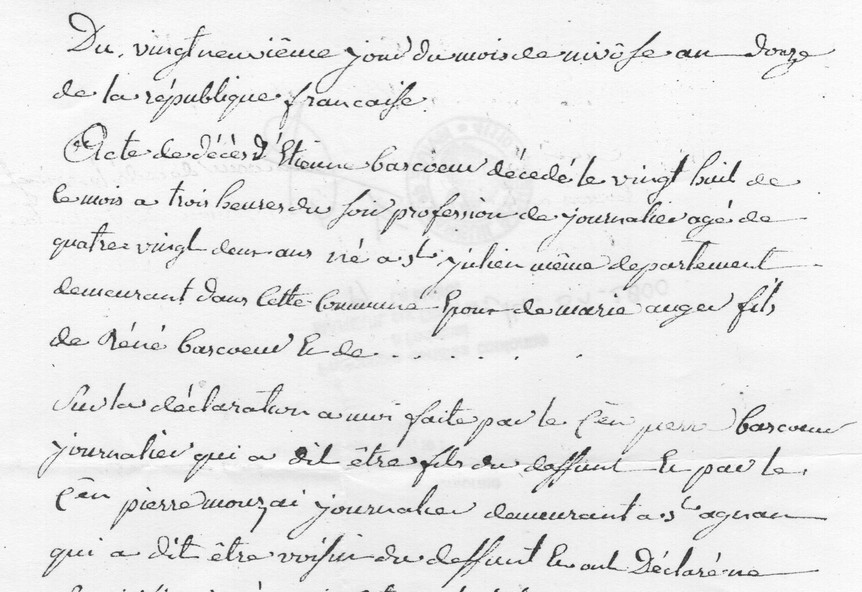 Du vingtneuvième jour du mois de nivôse an douze
de la république francaise.
Acte de décès d'Etienne bascoeur décedé le vingt huit de
ce mois a trois heures du soir profession de journalier agé de
quatre-vingt deux ans né a st julien même departement
demeurant dans cette commune Epoux de marie auger fils
de Réné bascoeur Et de . . . . . .
Sur la déclaration a moi faite par le Cen pierre bascoeur
journalier qui a dit être fils du deffunt Et par le
Cen pierre mouzai journalier demeurant a st agnan
qui a dit être voisin du deffunt Et ont Déclaré ne